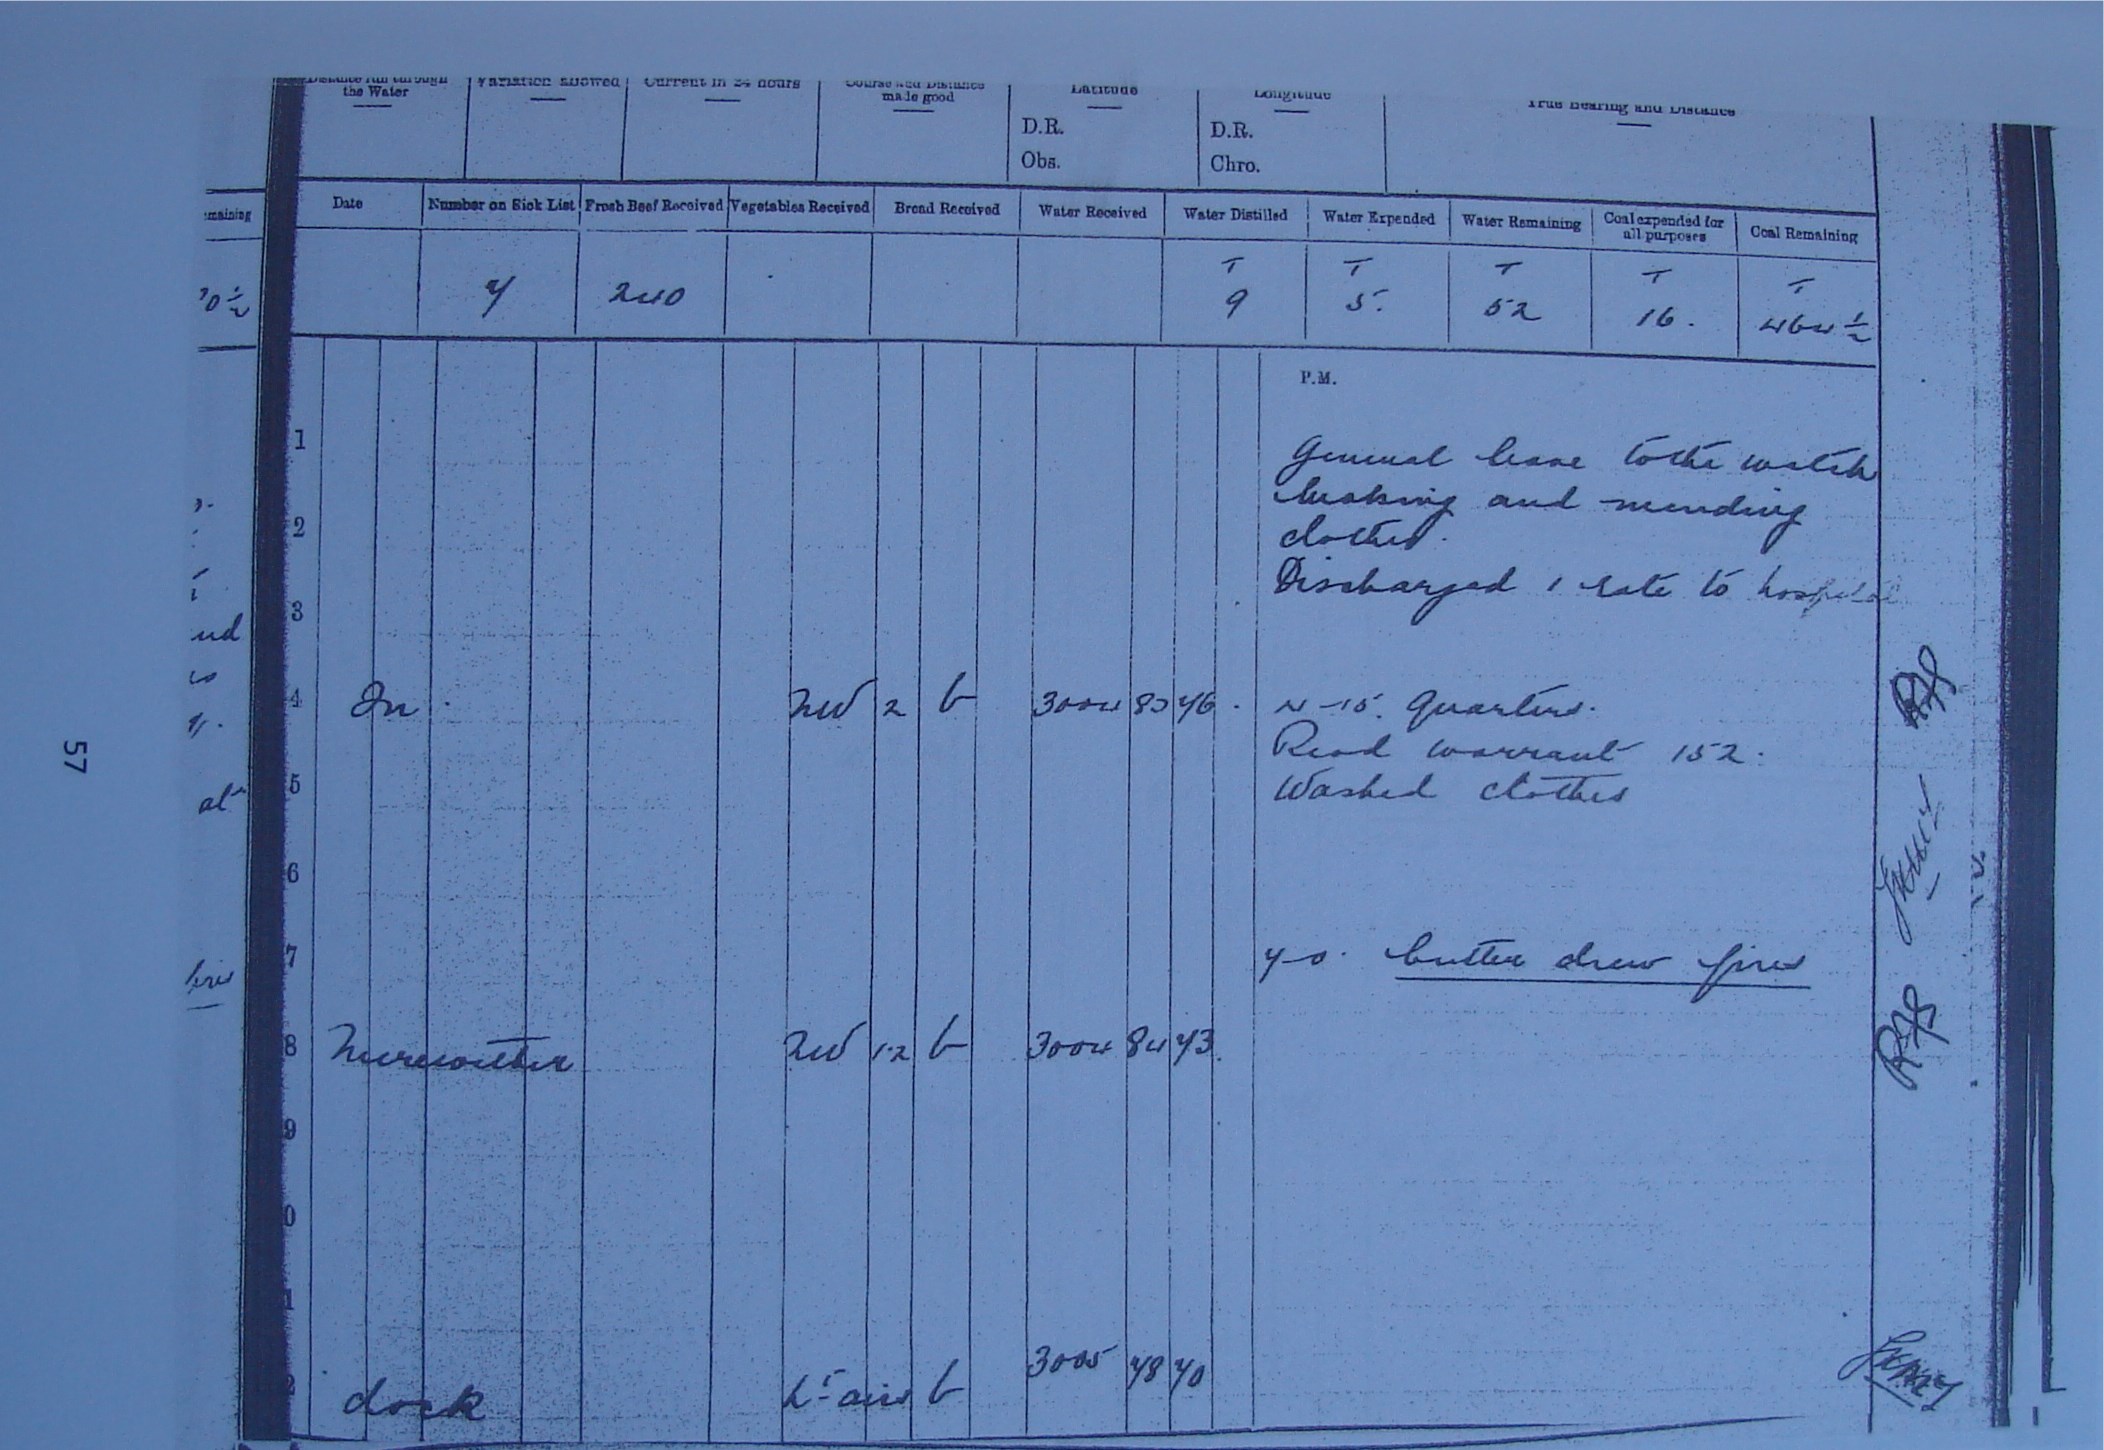 Distance run through the Water
Variation allowed
Current in 24 hours
Course and Distance made good
Latitude
D.R.
Obs.
Longitude
D.R.
Chro.
True Bearing and Distance
emaining
Date
Number on Sick List
Fresh Beef Received
Vegetables Received
Bread Received
Water Received
Water Distilled
Water Expended
Water Remaining
Coal expended for all purposes
Coal Remaining
T T T T T
70 1/2
7 240 9 5. 52 16. 464 1/2
P.M.
1
General leave to the watch
Making and mending
2
clothes.
Discharged 1 rate to hospital
3
ud
4 In NW 2 b 3004 83 76. 4-15. Quarters.
Read warrant 152.
5
Washed clothes
at
6
7
7-0. Cutter drew fires
fires
8 Merewether NW 1.2 b 3004 84 73
9
0
1
2 dock Lt airs b 3005 78 70
57